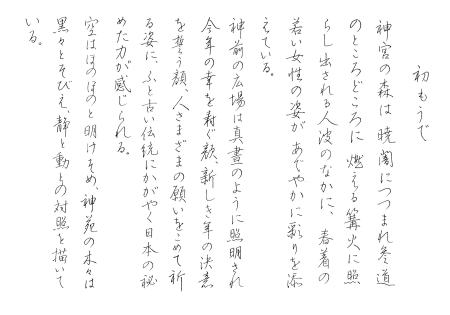 初もうで
神宮の森は暁闇につつまれ参道
のところどころに燃える篝火に照
らし出される人波のなかに、春着の
若い女性の姿があでやかに彩りを添
えている。
神前の広場は真昼のように照明され
今年の幸を寿ぐ顔、新しき年の決意
を誓う顔、人さまざまの願いをこめて祈
る姿に、ふと古い伝統にかがやく日本の秘
めた力が感じられる。
空はほのぼのと明けそめ、神苑の木々は
黒々とそびえ、静と動との対照を描いて
いる。